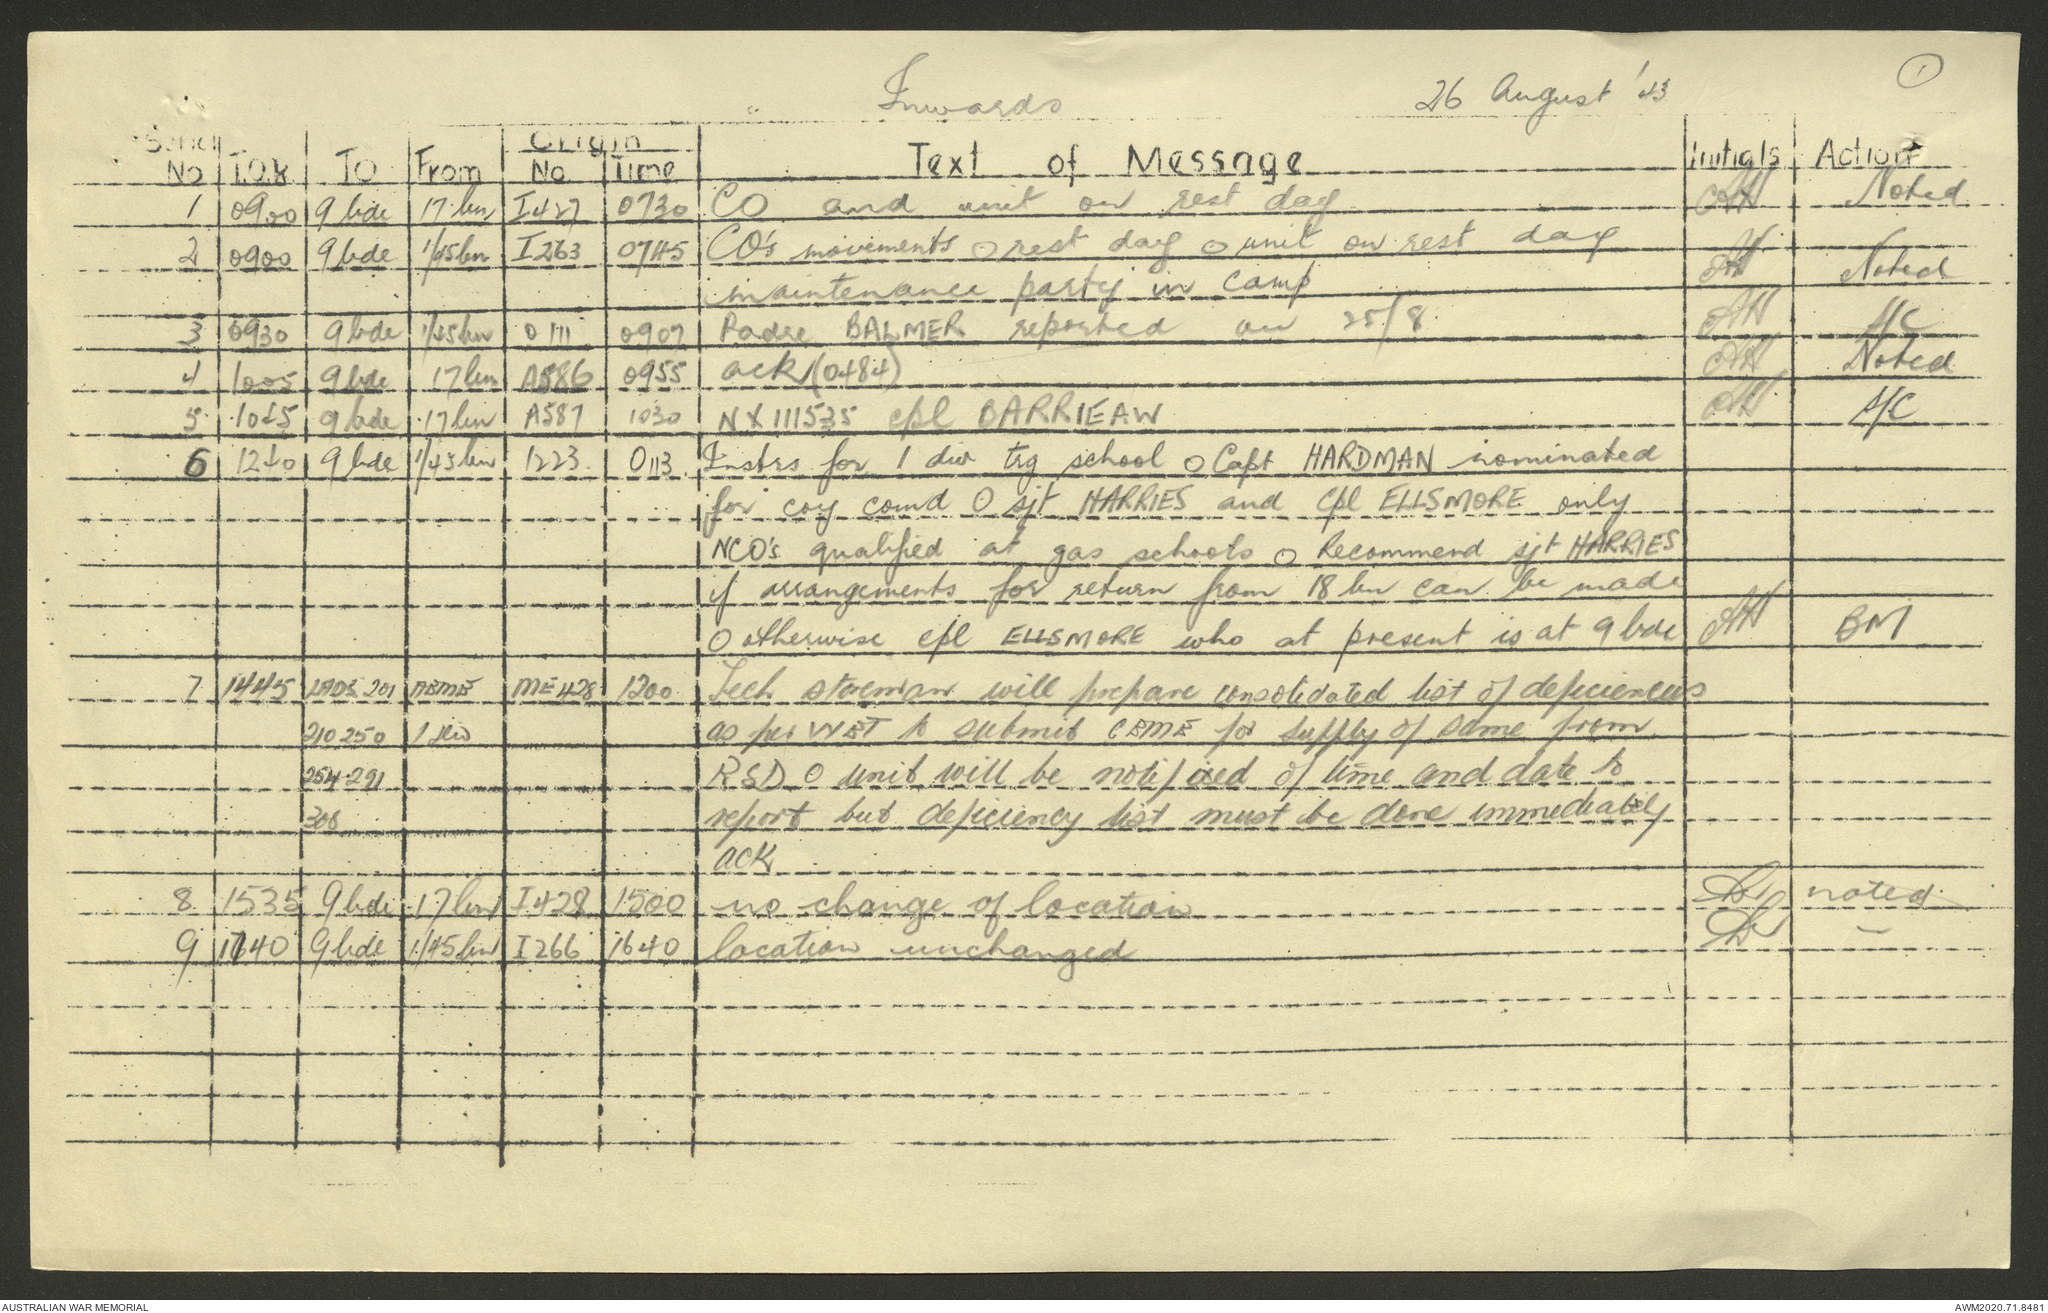 1
Inwards 26 August '43
Serial No T.O.R TO From Origin No Time Text of Message Initials Action
1 0900 9 bde 17 bn I427 0730 CO and unit on rest day Noted
2 0900 9 bde 1/45 bn I263 0745 CO's movements O rest day O unit on rest day
maintenance party in camp Noted
3 0930 9 bde 1/45 bn O111 0907 Padre BALMER reported on 25/8 S/C
4 1005 9 bde 17 bn A586 0955 ack (0484) Noted
5 1045 9 bde 17 bn A587 1030 NX111535 cpl BARRIE AW S/C
6 1240 9 bde 1/45 bn 1223 0113 Instrs for 1 div trg school O Capt HARDMAN nominated
for coy comd O sjt HARRIES and Cpl ELLSMORE only
NCO's qualified at gas schools O Recommend sjt HARRIES
if arrangements for return from 18 bn can be made
O otherwise cpl ELLSMORE who at present is at 9 bde BM
7 1445 LADS 201 AEME ME428 1200 Tech storeman will prepare consolidated list of deficiencies
210 250 1 div as per WET to submit CEME for supply of same from
254 291 RSD O unit will be notified of time and date to
308 report but deficiency list must be done immediately
ACK
8 1535 9 bde 17 bn I428 1500 no change of location noted
9 1740 9 bde 1/45 bn I266 1640 location unchanged —
AUSTRALIAN WAR MEMORIAL AWM2020.71.8481